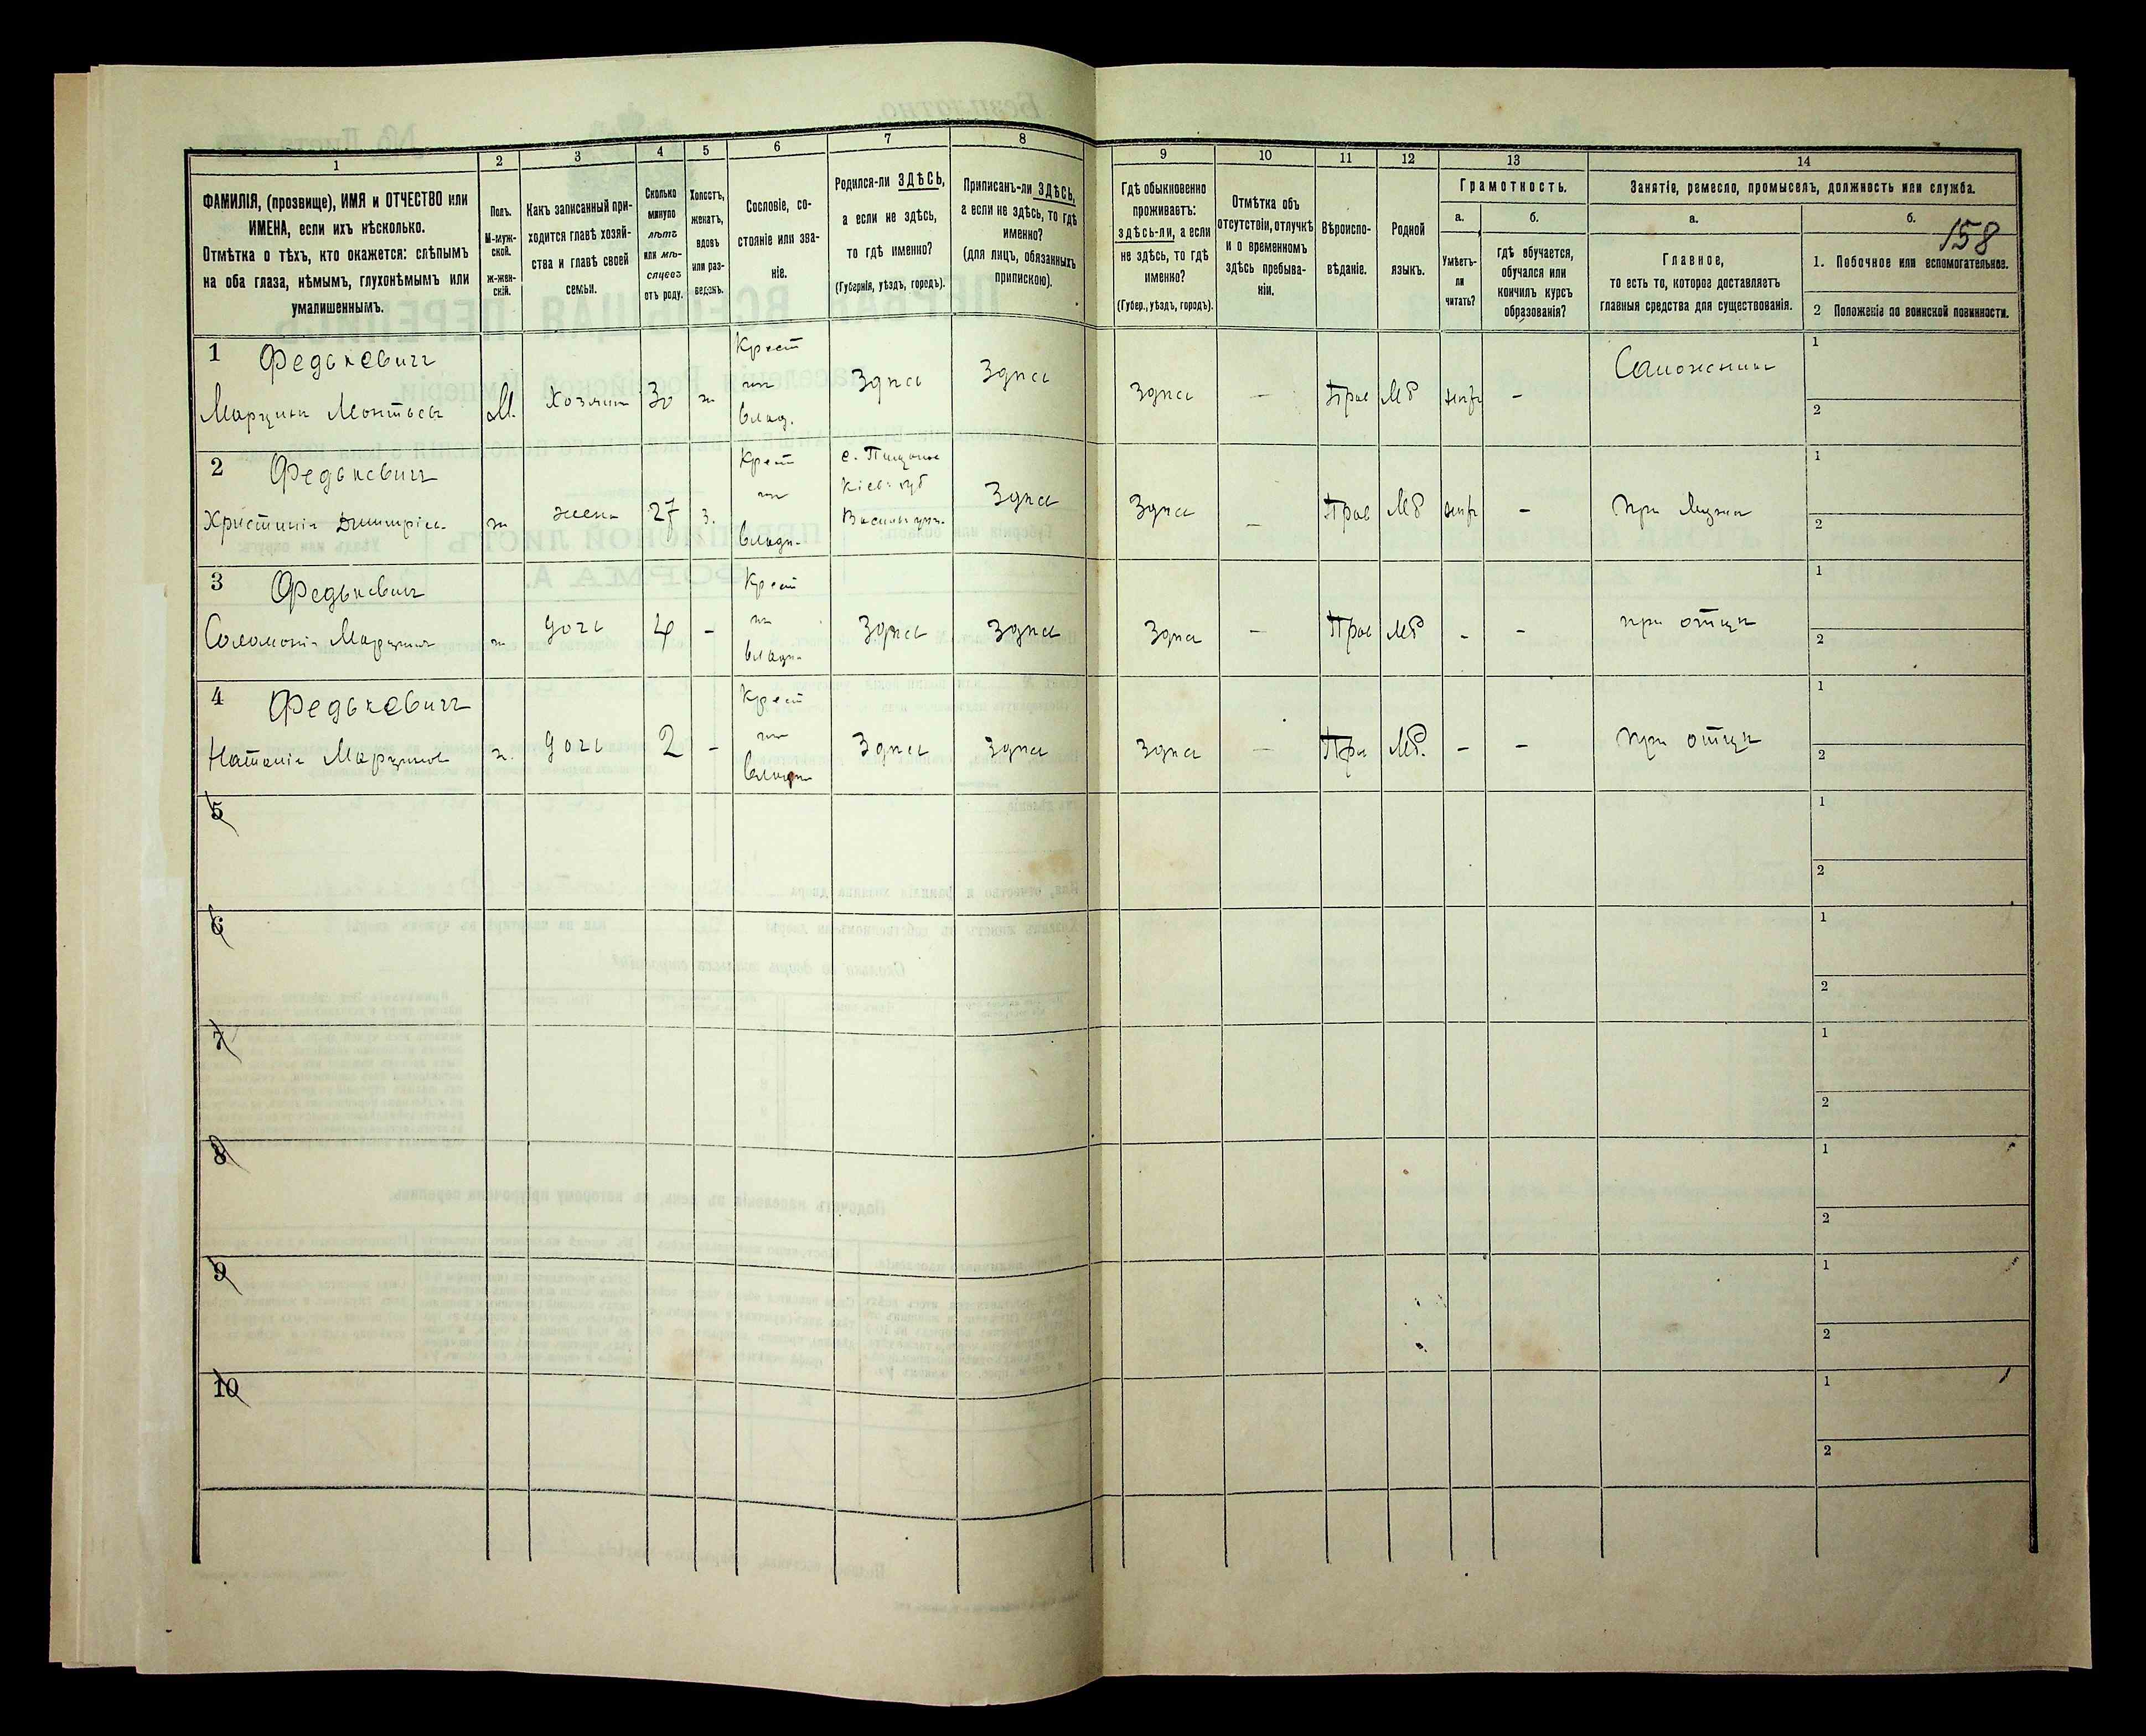 158
1
2
3
4
5
6
7
8
9
10
11
12
13
14
ФАМИЛІЯ, (прозвище), ИМЯ и ОТЧЕСТВО или
ИМЕНА, если ихъ нѣсколько.
Отмѣтка о тѣхъ, кто окажется: слѣпымъ
на оба глаза, нѣмымъ, глухонѣмымъ или
умалишеннымъ.
Полъ.
М-муж-
ской.
ж-жен-
скій.
Какъ записанный при-
ходится главѣ хозяй-
ства и главѣ своей
семьи.
Сколько
минуло
лѣтъ
или мѣ-
сяцевъ
отъ роду.
Холостъ,
женатъ,
вдовъ
или раз-
веденъ.
Сословіе, со-
стояніе или зва-
ніе.
Родился-ли ЗДѢСЬ,
а если не здѣсь,
то гдѣ именно?
(Губернія, уѣздъ, городъ).
Приписанъ-ли ЗДѢСЬ,
а если не здѣсь, то гдѣ
именно?
(для лицъ, обязанныхъ
припискою).
Гдѣ обыкновенно
проживаетъ:
здѣсь-ли, а если
не здѣсь, то гдѣ
именно?
(Губер., уѣздъ, городъ).
Отмѣтка объ
отсутствіи, отлучкѣ
и о временномъ
здѣсь пребыва-
ніи.
Вѣроиспо-
вѣданіе.
Родной
языкъ.
Грамотность.
а.
Умѣетъ-
ли
читать?
б.
гдѣ обучается,
обучался или
кончилъ курсъ
образованія?
Занятіе, ремесло, промыселъ, должность или служба.
а.
Главное,
то есть то, которое доставляетъ
главныя средства для существованія.
б.
1. Побочное или вспомогательное.
2 Положеніе по воинской повинности.
1 Федькевичъ
М. Хозяин 30 ж
Крест
влад.
Здѣсь Здѣсь Здѣсь — Прав МР — 1
2
2 Федькевичъ
Христинія ж жена 27 з.
Крест
влади-
Кіев. губ
Здѣсь Здѣсь — Прав МР — При мужи 1
2
3 Федькевичъ
Соломонія ж дочь 4 -
Крест
влади-
Здѣсь Здѣсь Здѣсь — Прав МР - - при отци 1
2
4 Федькевичъ
Наталія ж. дочь 2 -
Крест
влади
Здѣсь Здѣсь Здѣсь — Пра МР. - - при отци 1
2
5 1
2
6 1
2
7 1
2
8 1
2
9 1
2
10 1
2